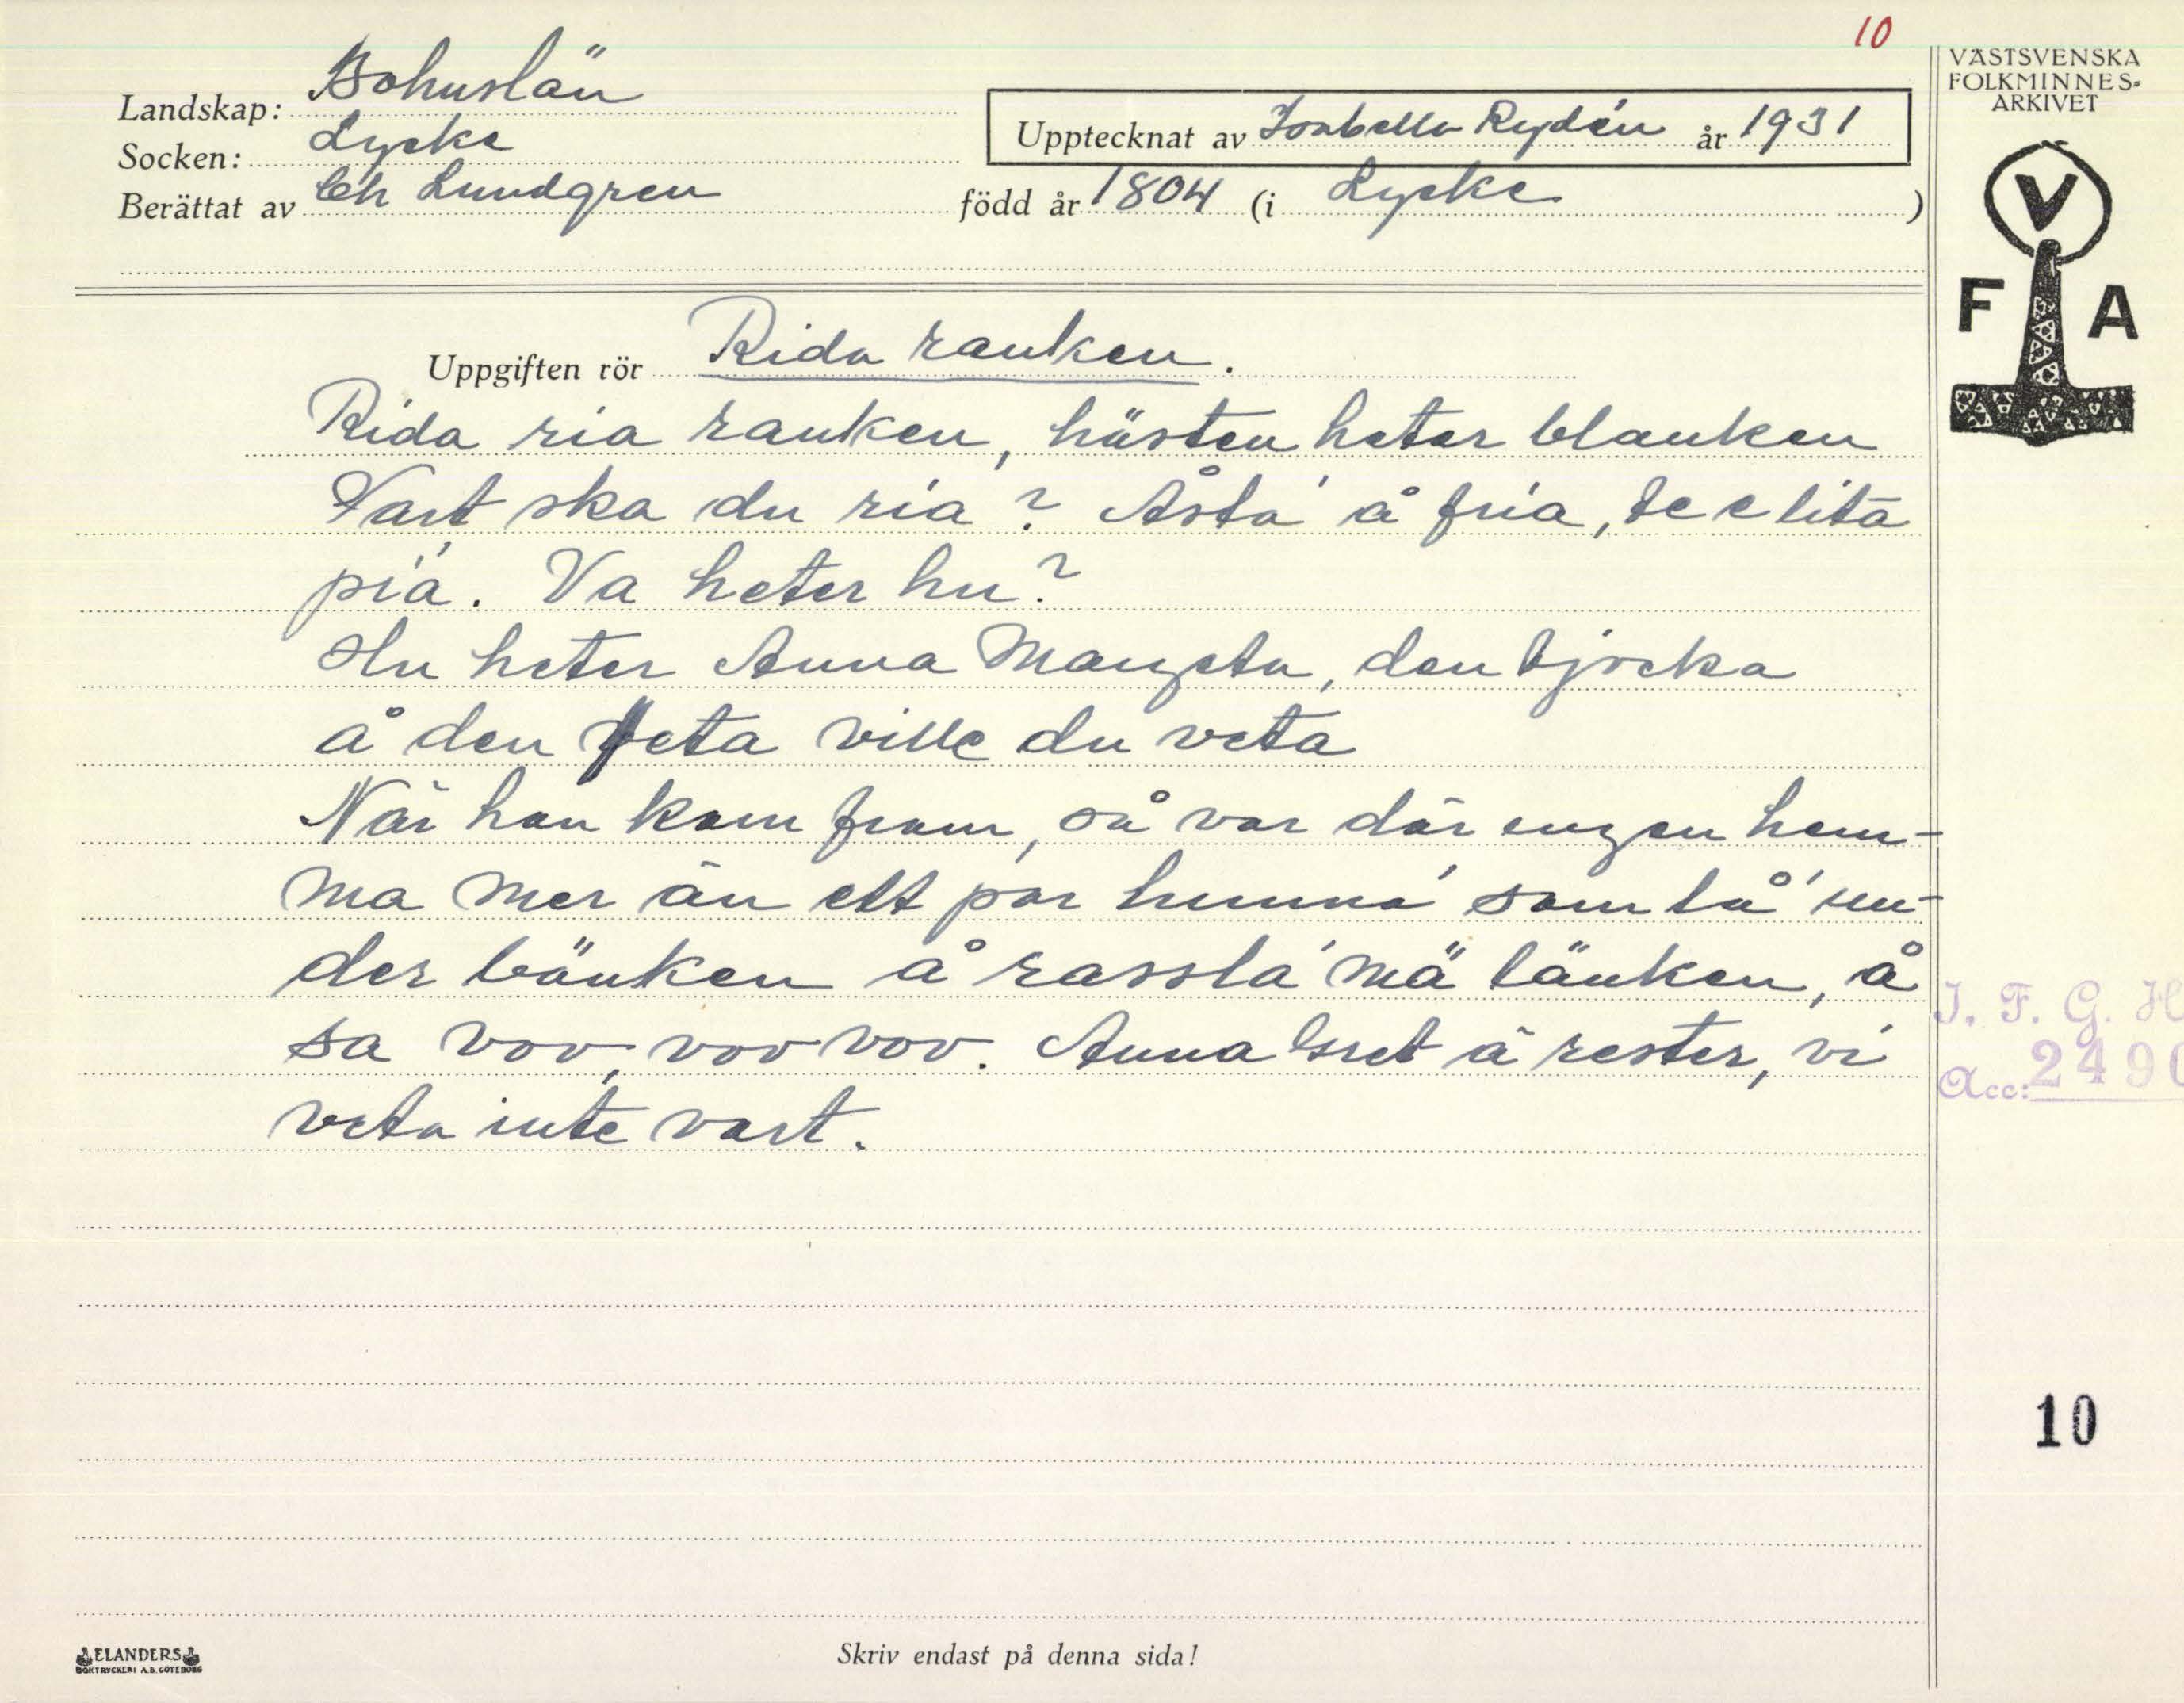 10
VÄSTSVENSKA
FOLKMINNES-
ARKIVET
Landskap: Bohuslän
Socken: Lycke
Upptecknat av Isabella Rydén år 1931
Berättat av Ch Lundgren född år 1804 (i Lycke )
V
F A
Uppgiften rör Rida ranken.
Rida ria ranken, hästen heter blanken
Vart ska du ria? Åsta å fria, te e lita
pia. Va heter hu?
Hu heter Anna Margeta, den tjocka
å den feta ville du veta
När han kom fram, så var där engen hem-
ma mer än ett par hunna som lå un-
der bänken å rassla mä länken, å
sa vov, vov vov. Anna Gret ä rester, vi
veta inte vart.
I. F. G. H
Acc: 2490
10
ELANDERS
BOKTRYCKERI A.B. GÖTEBORG
Skriv endast på denna sida!